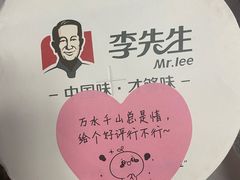 李先生
Mr.lee
－中国味·才够味－
万水千山总是情，
给个好评行不行~